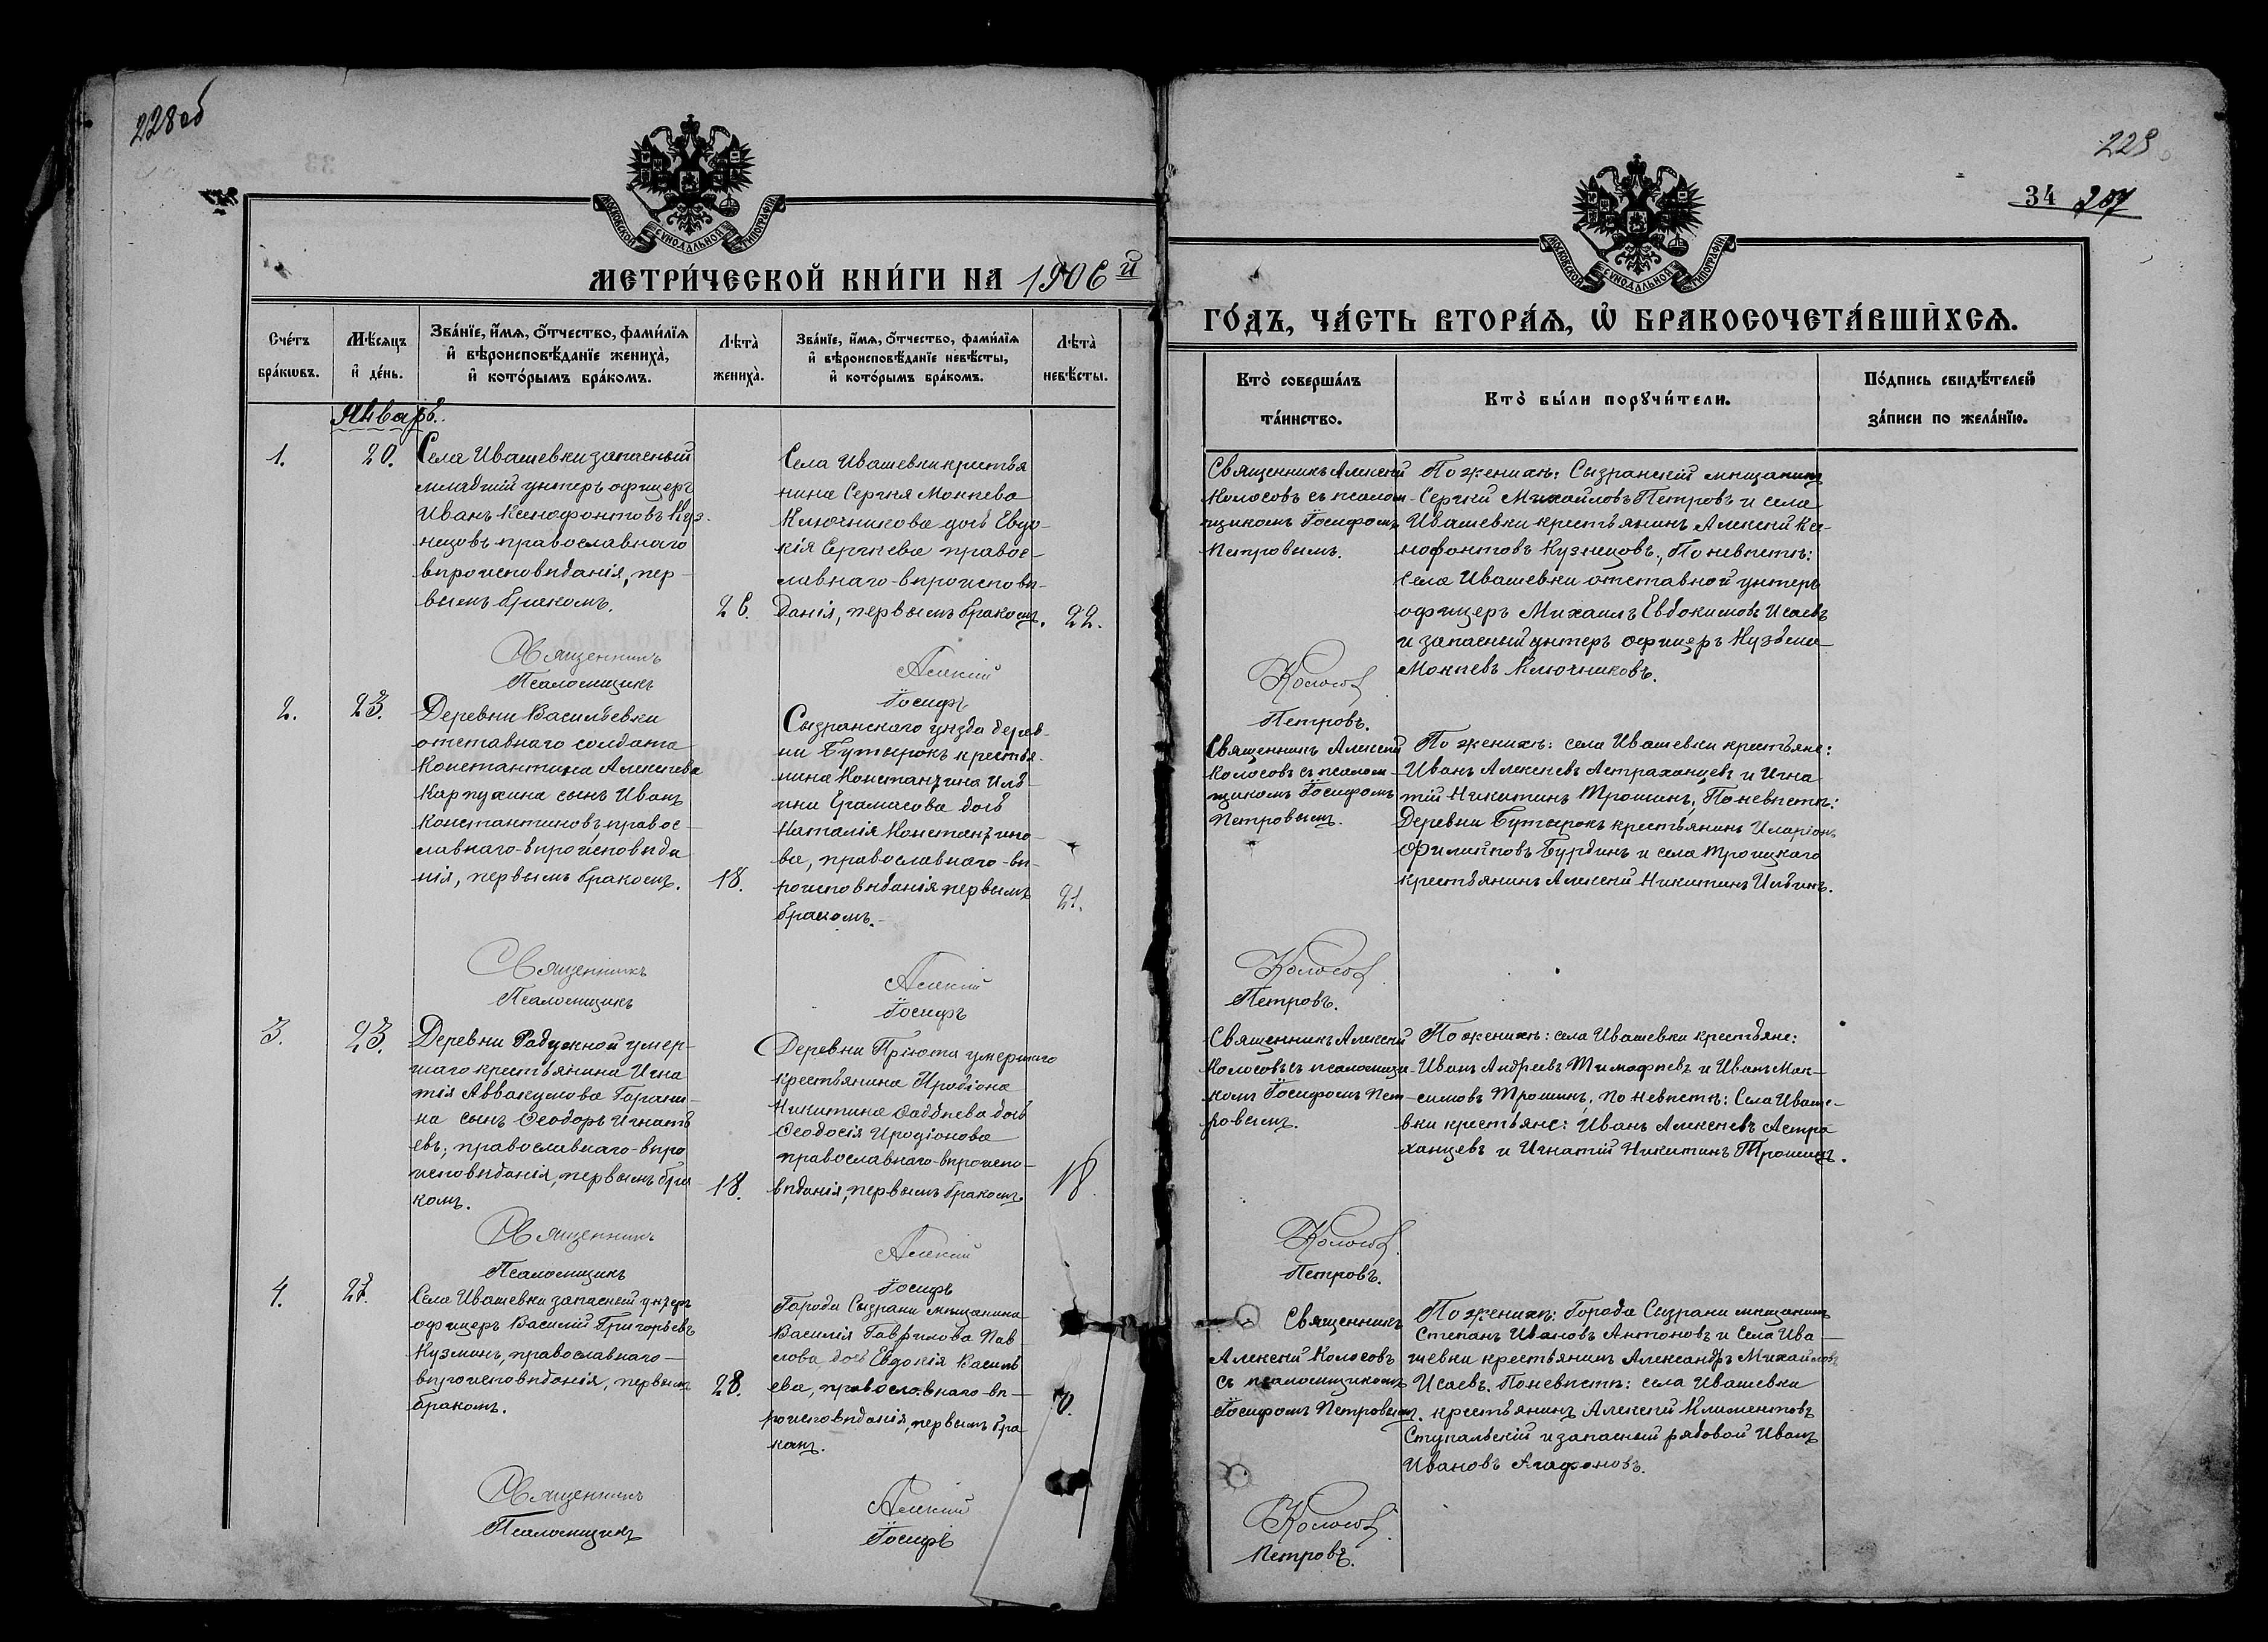 228об
МОСКОВСКОЙ СѴНОДАЛЬНОЙ ТИПОГРАФІИ
МЕТРИ́ЧЕСКОЙ КНИ́ГИ НА 1906й
Сче́тъ бра́кωвъ.
Мѣ́сяцъ и҆ де́нь.
Зва́нїе, и҆́мѧ, ѻ҆́тчество, фами́лїѧ
и҆ вѣроисповѣ́данїе жениха̀,
и҆ кото́рымъ бра́комъ.
Лѣта̀ жениха̀.
Зва́нїе, и҆́мѧ, ѻ҆́тчество, фами́лїѧ
и҆ вѣроисповѣ́данїе невѣ́сты,
и҆ кото́рымъ бра́комъ.
Лѣта̀ невѣ́сты.
Январь.
1.
20.
Села Ивашевки запасный
младшій унтеръ офицеръ
Иванъ Ксенофонтовъ Куз-
нецовъ православнаго
вѣроисповѣданія, пер-
вымъ бракомъ.
26.
Села Ивашевки крестья
нина Сергѣя Мокѣева
Ключникова дочь Евдо-
кія Сергѣева правос-
лавнаго вѣроисповѣ-
данія, первымъ бракомъ.
22.
Священникъ Алексій
Псаломщикъ Іосифъ
2.
23.
Деревни Васильевки
отставнаго солдата
Константина Алексѣева
Карпухина сынъ Иванъ
Константиновъ правос-
лавнаго вѣроисповѣда
нія, первымъ бракомъ.
18.
Сызранскаго уѣзда дерев-
ни Бутырокъ крестья-
нина Константина Иль-
ина дочь
Наталія Константино-
ва, православнаго вѣ-
роисповѣданія первымъ
бракомъ.
21.
Священникъ Алексій
Псаломщикъ Іосифъ
3.
23.
Деревни Радужной умер-
шаго крестьянина Игна
тія Аввакумова Горани-
на сынъ Ѳеодоръ Игнать
евъ, православнаго вѣро
исповѣданія, первымъ бра
комъ.
18.
Деревни Пріюта умершаго
крестьянина Иродіона
Никитина Ѳаддѣева дочь
Ѳеодосія Иродіонова
православнаго вѣроиспо-
вѣданія, первымъ бракомъ
18.
Священникъ Алексій
Псаломщикъ Іосифъ
4.
27.
Села Ивашевки запасный унтеръ
офицеръ Василій Григорьевъ
Кузминъ, православнаго
вѣроисповѣданія, первымъ
бракомъ.
28.
Города Сызрани мѣщанина
Василія Гаврилова Пав
лова дочь Евдокія Василь
ева, православнаго вѣ-
роисповѣданія, первымъ бра
комъ.
Священникъ Алексій
Псаломщикъ Іосифъ
229
34 207
МОСКОВСКОЙ СѴНОДАЛЬНОЙ ТИПОГРАФІИ
ГО́ДЪ, ЧА́СТЬ ВТОРА́Ѧ, Ѽ БРАКОСОЧЕТА́ВШИХСѦ.
Кто̀ соверша́лъ та́инство.
Кто̀ бы́ли порꙋчи́тели.
По́дпись свидѣ́телей за́писи по жела́нїю.
Священникъ Алексій
Колосовъ съ псалом-
щикомъ Іосифомъ
Петровымъ.
По женихѣ: Сызранскій мѣщанинъ
Сергѣй Михайловъ Петровъ и села
Ивашевки крестьянинъ Алексѣй Ксе-
нофонтовъ Кузнецовъ, По невѣстѣ:
Села Ивашевки отставной унтеръ
офицеръ Михаилъ Евдокимовъ Исаевъ
и запасный унтеръ офицеръ Кузьма
Мокѣевъ Ключниковъ.
Колосов
Петровъ.
Священникъ Алексій
Колосовъ съ псалом-
щикомъ Іосифомъ
Петровымъ.
По женихѣ: села Ивашевки крестьяне:
Иванъ Алексѣевъ Астраханцевъ и Игна
тій Никитинъ Трошинъ, По невѣстѣ:
Деревни Бутырокъ крестьянинъ Иларіонъ
Филипповъ Бурдинъ и села Троицкаго
крестьянинъ Алексѣй Никитинъ Ильинъ.
Колосов
Петровъ.
Священникъ Алексій
Колосовъ съ псаломщи-
комъ Іосифомъ Пет-
ровымъ.
По женихѣ: села Ивашевки крестьяне:
Иванъ Андреевъ Тимофѣевъ и Иванъ Мак-
симовъ Трошинъ, по невѣстѣ: Села Иваше-
вки крестьяне: Иванъ Алексѣевъ Астра
ханцевъ и Игнатій Никитинъ Трошинъ.
Колосов
Петровъ.
Священникъ
Алексій Колосовъ
съ псаломщикомъ
Іосифомъ Петровымъ.
По женихѣ: Города Сызрани мѣщанинъ
Степанъ Ивановъ Антоновъ и Села Ива-
шевки крестьянинъ Александръ Михайловъ
Исаевъ. По невѣстѣ: села Ивашевки
крестьянинъ Алексѣй Климентовъ
Ступальскій и запасный рядовой Иванъ
Ивановъ Агафоновъ.
Колосов
Петровъ.